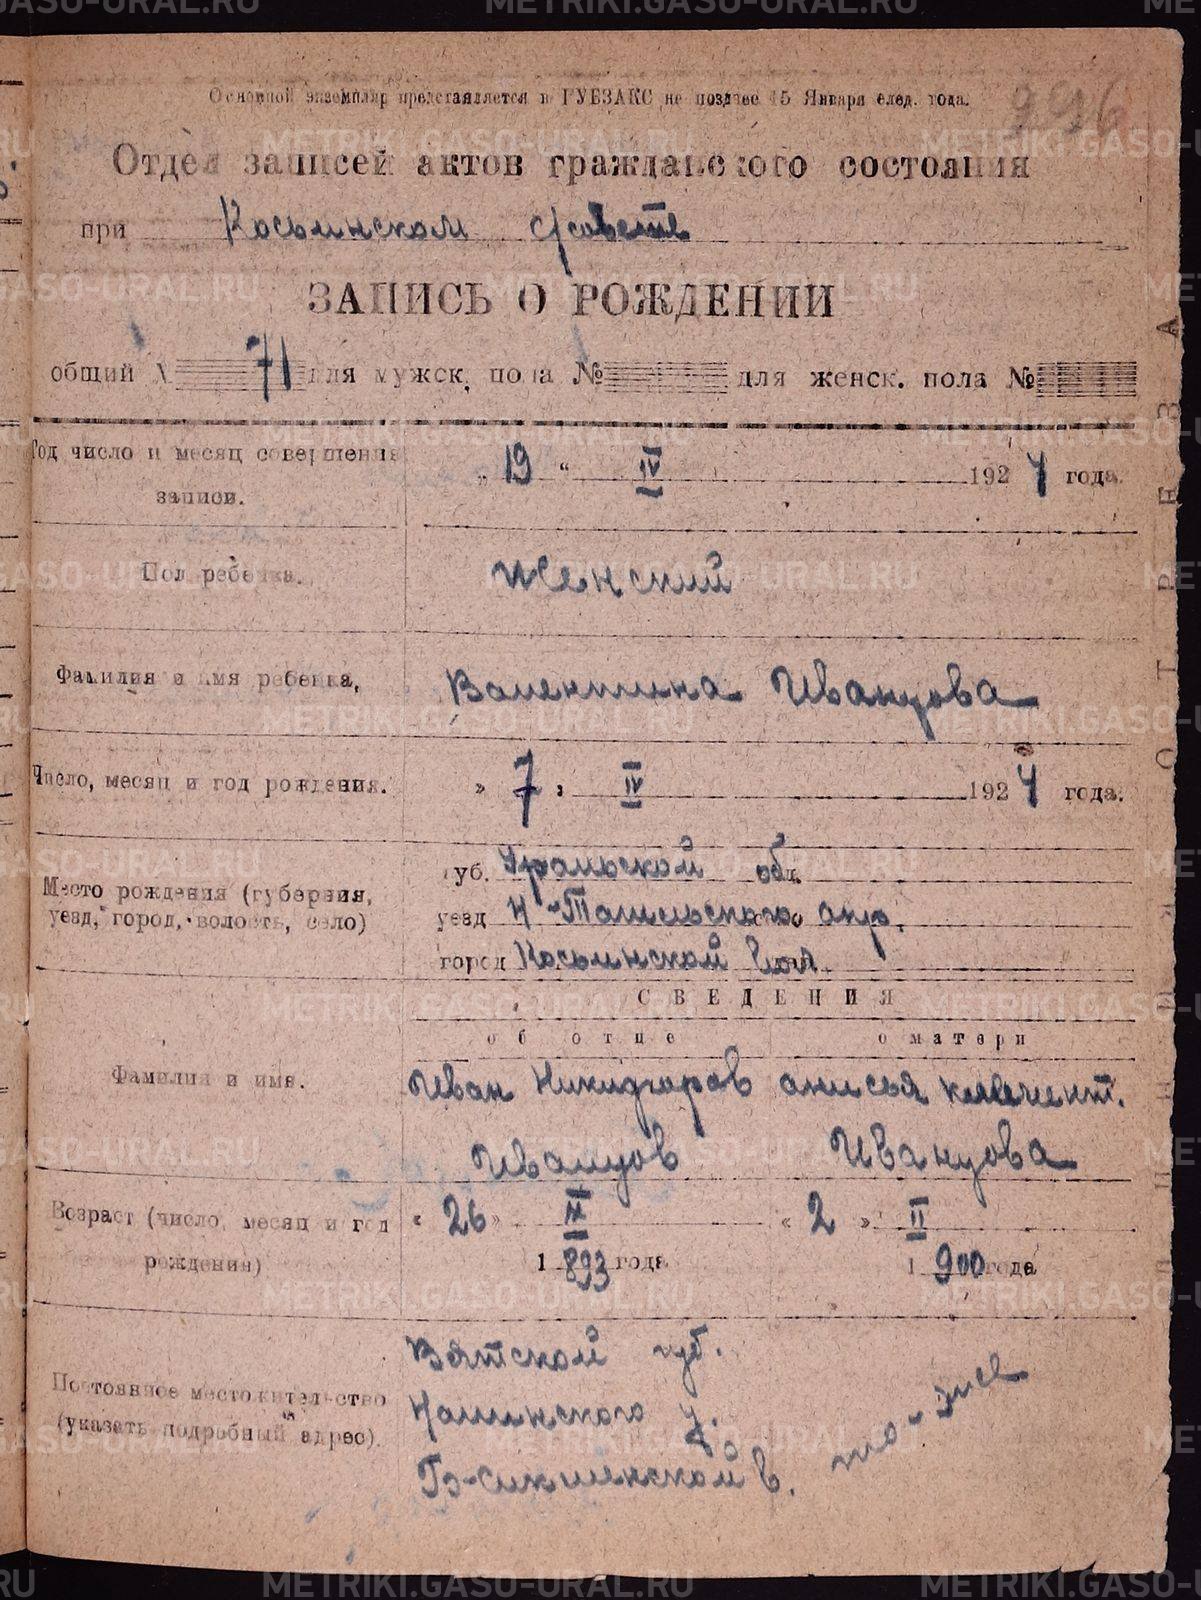 Основной экземпляр представляется в ГУБЗАКС не позднее 15 Января след. года.
996
Отдел записей актов гражданского состояния
при Косьинском с/совете
ЗАПИСЬ О РОЖДЕНИИ
общий № 71 для мужск. пола № для женск. пола №
Год число и месяц совершения записи. „ 19 “ IV 1924 года.
Пол ребенка. Женский
Фамилия и имя ребенка, Валентина Иванцова
Число, месяц и год рождения. » 7 , IV 1924 года.
Место рождения (губерния, уезд, город, волость, село)
губ. Уральской обл.
уезд Н-Тагильского окр.
город Косьинской вол
СВЕДЕНИЯ
об отце о матери
Фамилия и имя.
Иван Никифоров Анисья Клемент.
Иванцов Иванцова
Возраст (число, месяц и год рождения)
« 26 » IX « 2 » II
1893 года 1900 года
Постоянное местожительство (указать подробный адрес).
Вятской губ.
Нолинского у.
в. то-же
METRIKI.GASO-URAL.RU